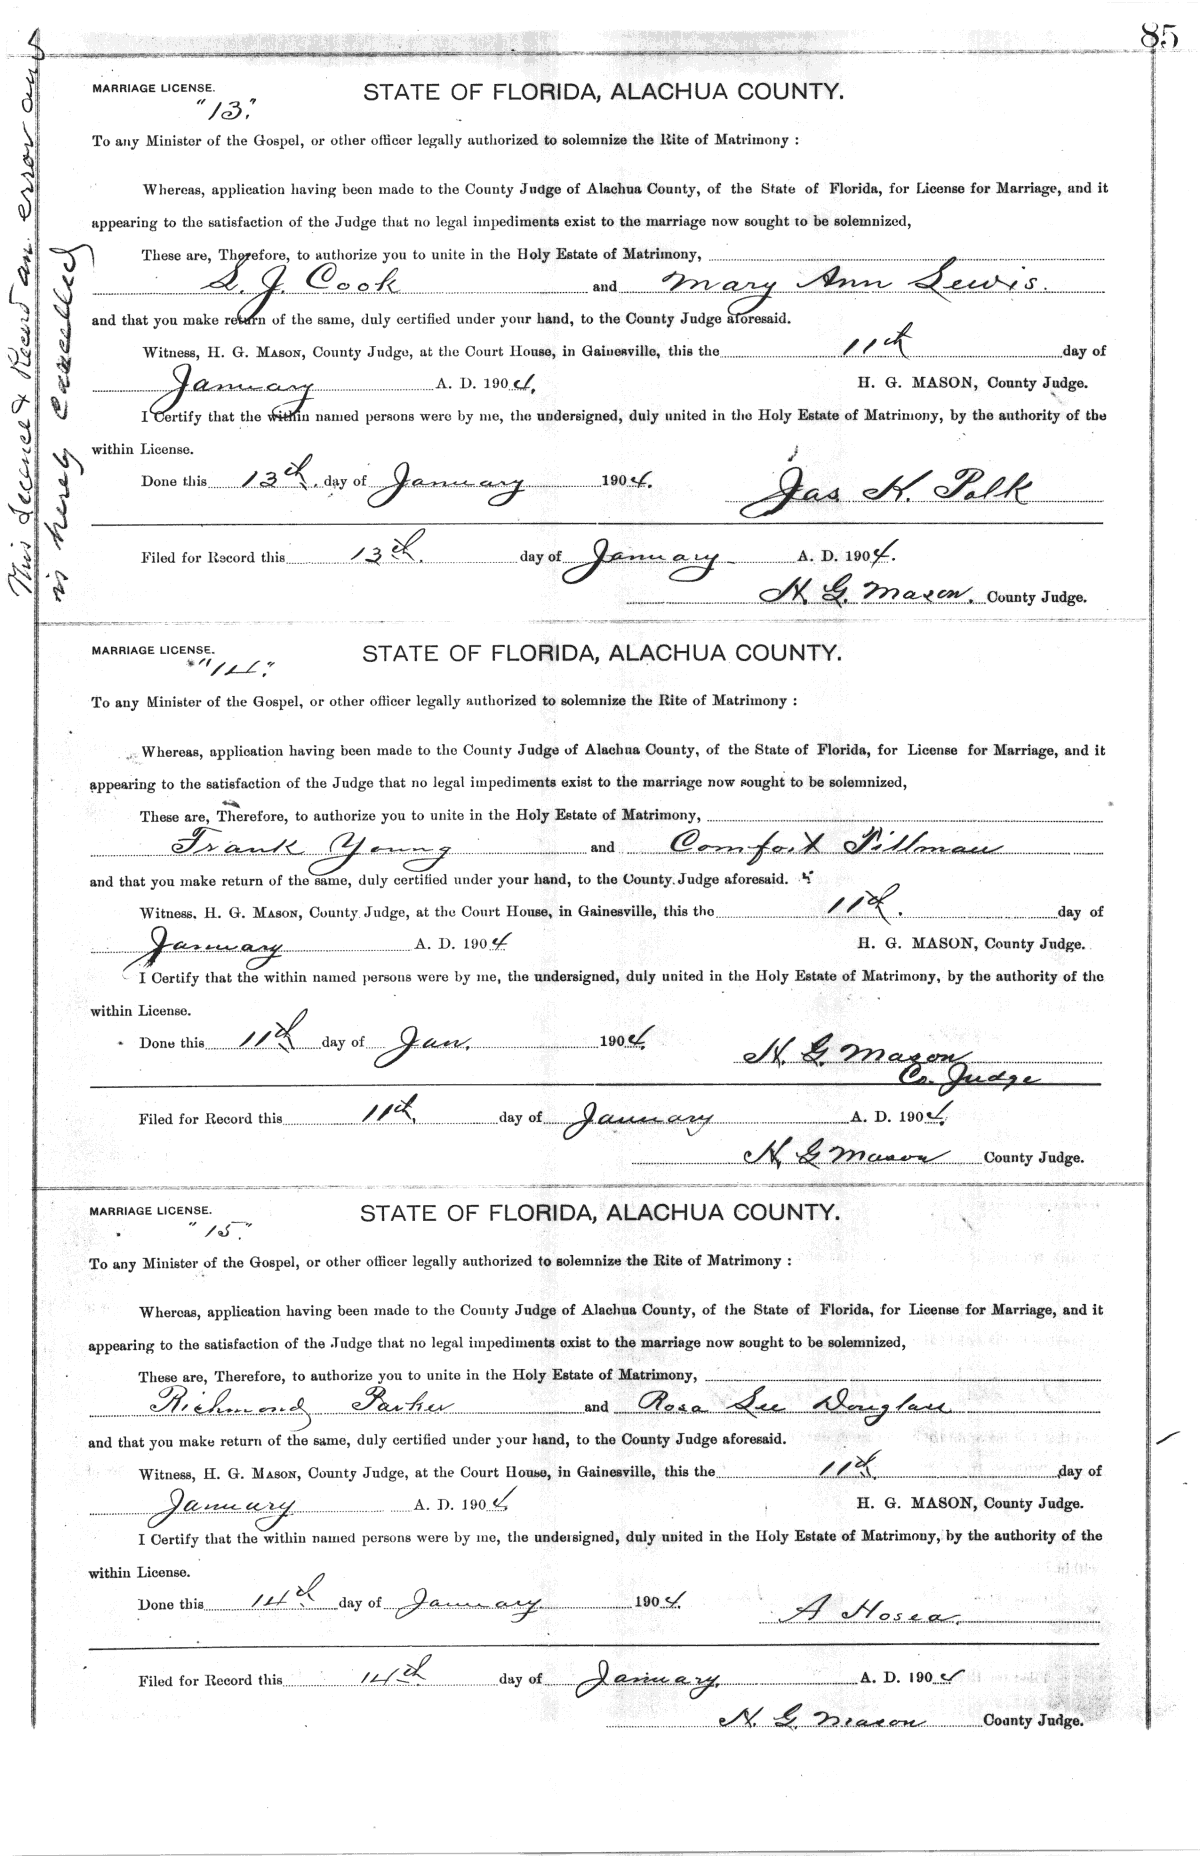 85
This Licence & Record an error and
is hereby Cancelled
MARRIAGE LICENSE.
"13."
STATE OF FLORIDA, ALACHUA COUNTY.
To any Minister of the Gospel, or other officer legally authorized to solemnize the Rite of Matrimony :
Whereas, application having been made to the County Judge of Alachua County, of the State of Florida, for License for Marriage, and it
appearing to the satisfaction of the Judge that no legal impediments exist to the marriage now sought to be solemnized,
These are, Therefore, to authorize you to unite in the Holy Estate of Matrimony,
S. J. Cook and Mary Ann Lewis.
and that you make return of the same, duly certified under your hand, to the County Judge aforesaid.
Witness, H. G. MASON, County Judge, at the Court House, in Gainesville, this the 11th day of
January A. D. 1904. H. G. MASON, County Judge.
I Certify that the within named persons were by me, the undersigned, duly united in the Holy Estate of Matrimony, by the authority of the
within License.
Done this 13th. day of January 1904. Jas K. Polk
Filed for Record this 13th. day of January A. D. 1904.
H. G. Mason. County Judge.
MARRIAGE LICENSE.
"14."
STATE OF FLORIDA, ALACHUA COUNTY.
To any Minister of the Gospel, or other officer legally authorized to solemnize the Rite of Matrimony :
Whereas, application having been made to the County Judge of Alachua County, of the State of Florida, for License for Marriage, and it
appearing to the satisfaction of the Judge that no legal impediments exist to the marriage now sought to be solemnized,
These are, Therefore, to authorize you to unite in the Holy Estate of Matrimony,
Frank Young and Comfort Tillman
and that you make return of the same, duly certified under your hand, to the County Judge aforesaid.
Witness, H. G. MASON, County Judge, at the Court House, in Gainesville, this the 11th. day of
January A. D. 1904 H. G. MASON, County Judge.
I Certify that the within named persons were by me, the undersigned, duly united in the Holy Estate of Matrimony, by the authority of the
within License.
Done this 11th day of Jan. 1904. H. G. Mason
Co. Judge
Filed for Record this 11th. day of January A. D. 1904.
H. G Mason County Judge.
MARRIAGE LICENSE.
"15."
STATE OF FLORIDA, ALACHUA COUNTY.
To any Minister of the Gospel, or other officer legally authorized to solemnize the Rite of Matrimony :
Whereas, application having been made to the County Judge of Alachua County, of the State of Florida, for License for Marriage, and it
appearing to the satisfaction of the Judge that no legal impediments exist to the marriage now sought to be solemnized,
These are, Therefore, to authorize you to unite in the Holy Estate of Matrimony,
Richmond Parker and Rosa Lee Douglass
and that you make return of the same, duly certified under your hand, to the County Judge aforesaid.
Witness, H. G. MASON, County Judge, at the Court House, in Gainesville, this the 11th day of
January A. D. 1904 H. G. MASON, County Judge.
I Certify that the within named persons were by me, the undersigned, duly united in the Holy Estate of Matrimony, by the authority of the
within License.
Done this 14th day of January 1904. A Hosea.
Filed for Record this 14th day of January. A. D. 1904
H. G. Mason County Judge.